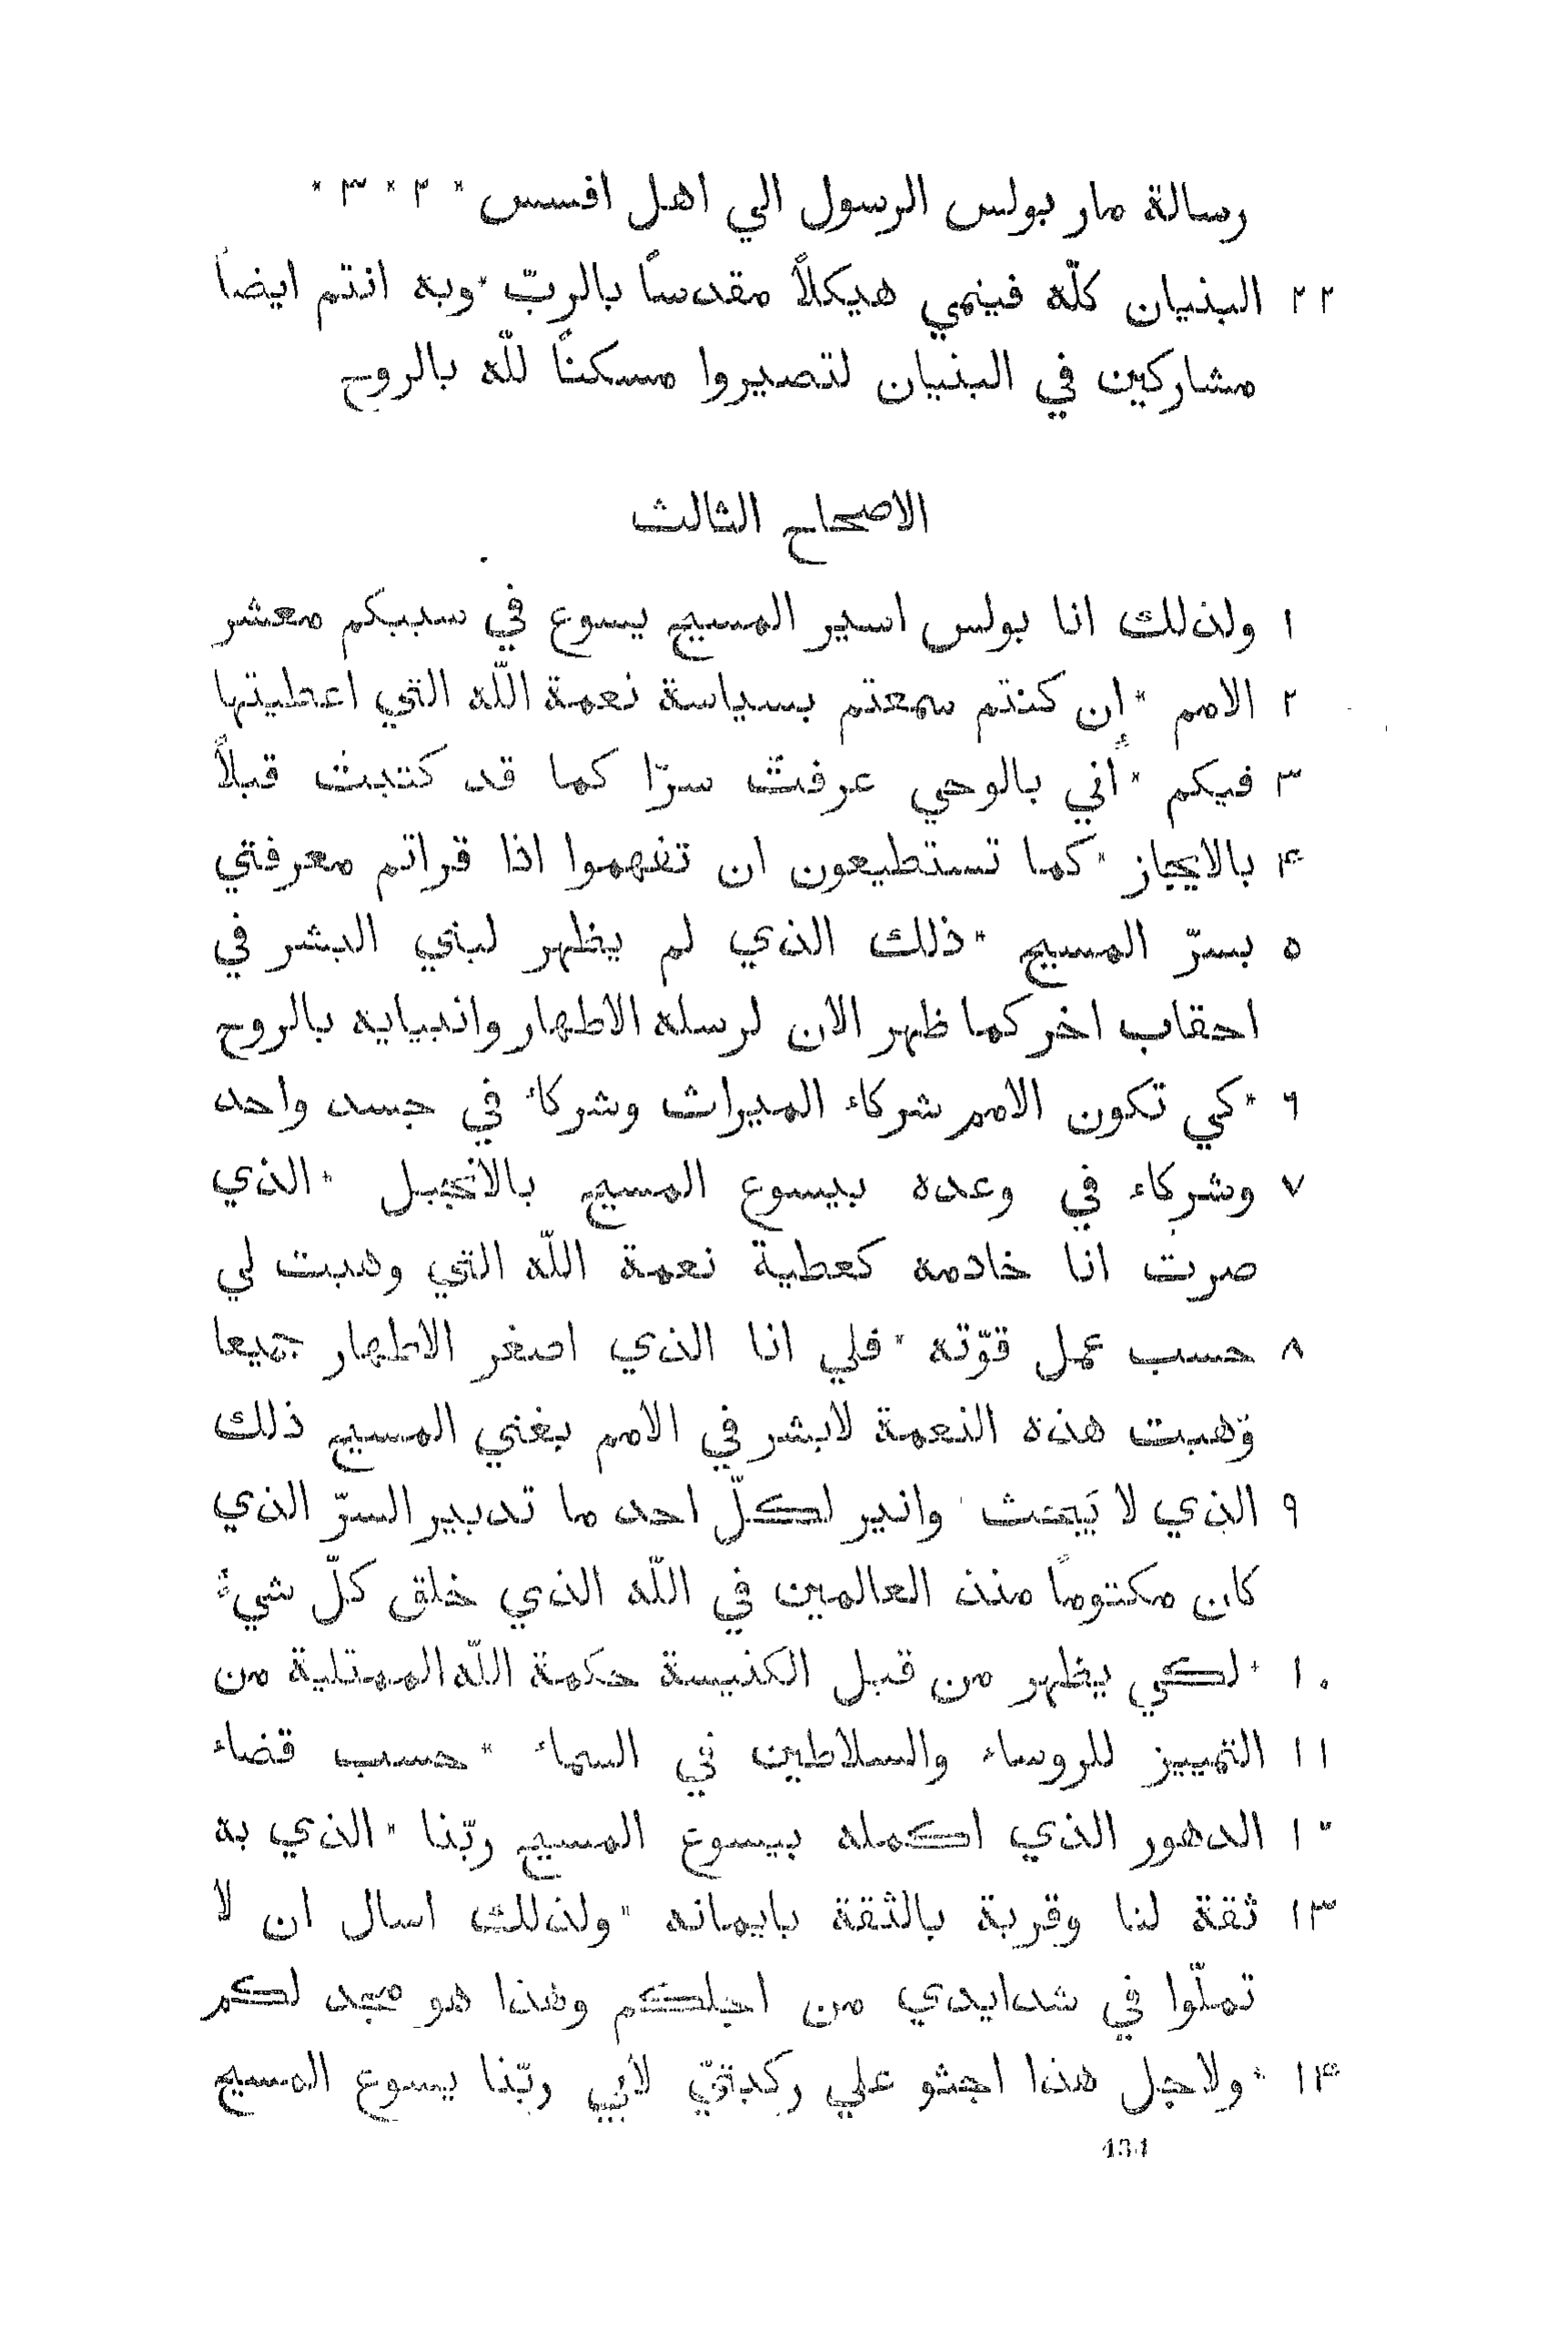 رسالة مار بولس الرسول الي اهل افسس * ٢ * ٣ *
٢٢ البنيان كلّه فينمي هيكلاً مقدساً بالربّ * وبه انتم ايضاً
مشاركين في البنيان لتصيروا مسكناً للّه بالروح
الاصحاح الثالث
١ ولذلك انا بولس اسير المسيح يسوع في سببكم معشر
٢ الامم * إن كنتم سمعتم بسياسة نعمة اللّه التي اعطيتها
٣ فيكم * أني بالوحي عرفت سرّا كما قد كتبت قبلاً
۴ بالايجاز * كما تستطيعون ان تفهموا اذا قراتم معرفتي
٥ بسرّ المسيح * ذلك الذي لم يظهر لبني البشر في
احقاب اخر كما ظهر الان لرسله الاطهار وانبيايه بالروح
٦ * كي تكون الامم شركاء الميراث وشركاء في جسد واحد
٧ وشركاء في وعده بيسوع المسيح بالانجيل * الذي
صرت انا خادمه كعطية نعمة اللّه التي وهبت لي
٨ حسب عمل قوّته * فلي انا الذي اصغر الاطهار جميعا
وهبت هذه النعمة لابشر في الامم بغني المسيح ذلك
٩ الذي لا يَبحث * وانير لكلّ احد ما تدبير السرّ الذي
كان مكتوماً منذ العالمين في اللّه الذي خلق كلّ شيءٍ
١٠ * لكي يظهر من قبل الكنيسة حكمة اللّه الممتلية من
١١ التمييز للروساء والسلاطين في السماء * حسب قضاء
١٢ الدهور الذي اكمله بيسوع المسيح ربّنا * الذي به
١٣ ثقة لنا وقربة بالثقة بايمانه * ولذلك اسال ان لا
تملّوا في شدايدي من اجلكم وهذا هو مجد لكم
١۴ * ولاجل هذا اجثو علي ركبتيّ لأبي ربّنا يسوع المسيح
434